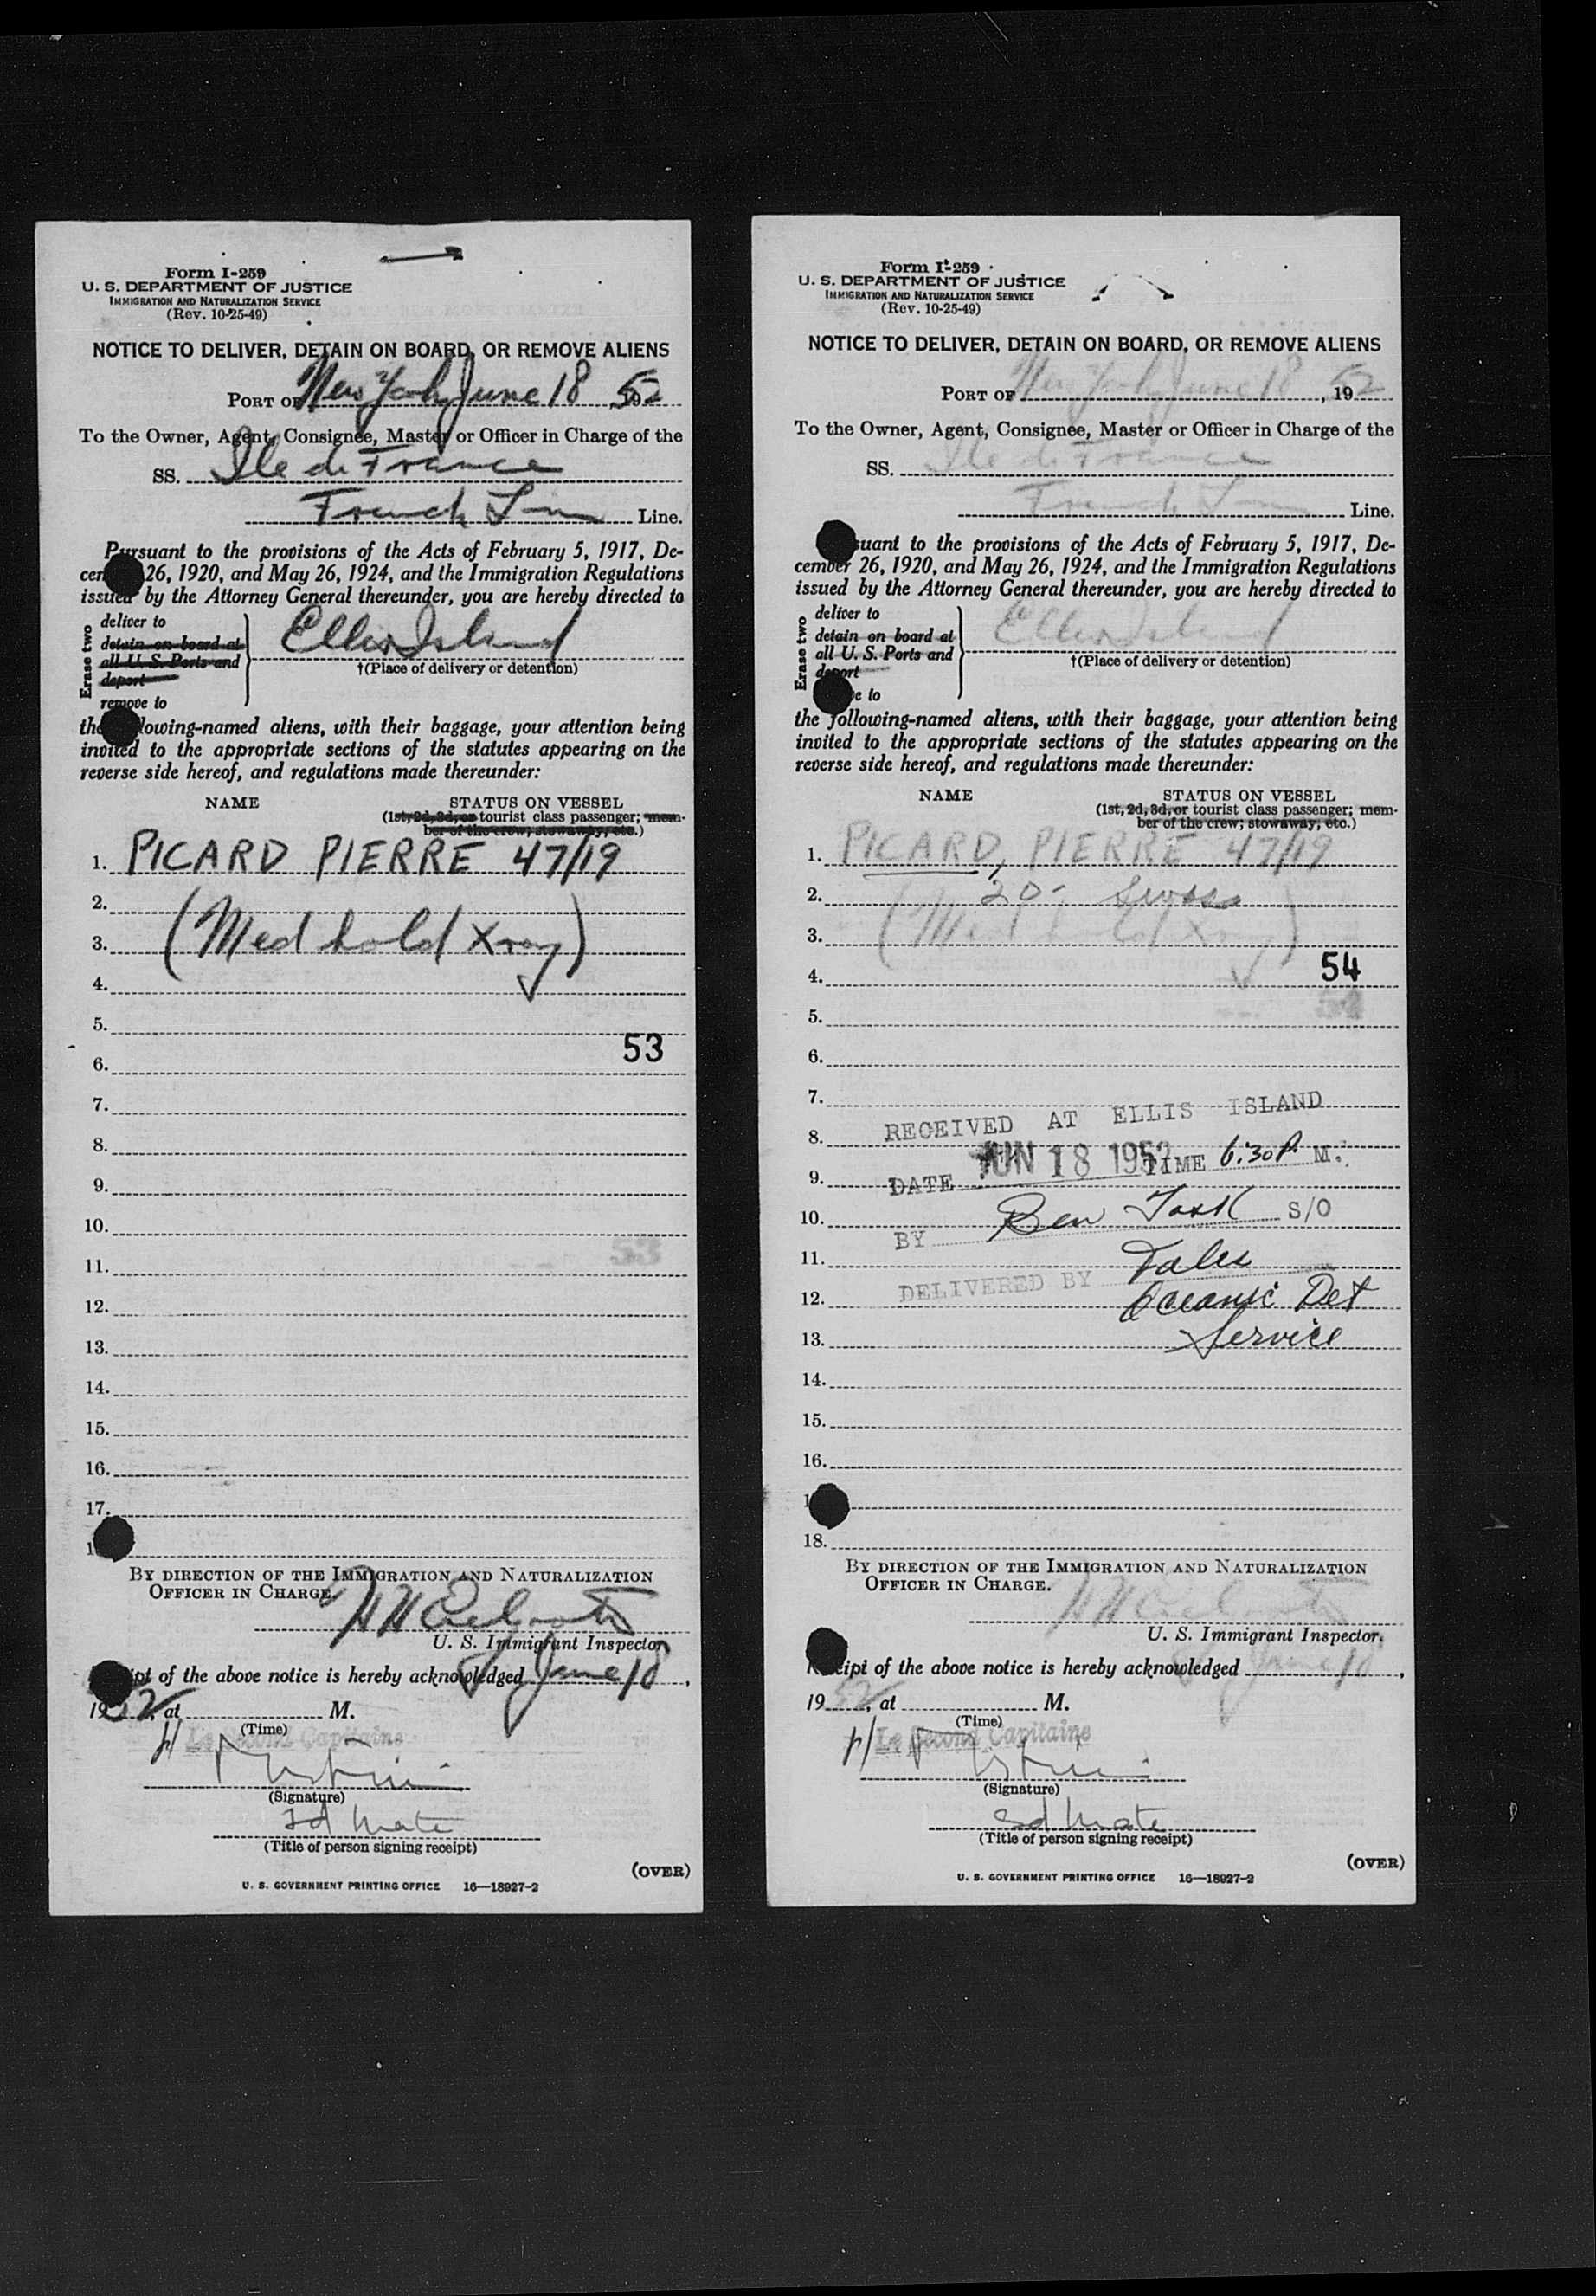 Form I-259
U. S. DEPARTMENT OF JUSTICE
IMMIGRATION AND NATURALIZATION SERVICE
(Rev. 10-25-49)
NOTICE TO DELIVER, DETAIN ON BOARD, OR REMOVE ALIENS
PORT OF New York June 18 52
To the Owner, Agent, Consignee, Master or Officer in Charge of the
SS. Ile de France
French Line Line.
Pursuant to the provisions of the Acts of February 5, 1917, De-
cem 26, 1920, and May 26, 1924, and the Immigration Regulations
issued by the Attorney General thereunder, you are hereby directed to
Erase two
deliver to
detain on board at
all U. S. Ports and
deport
remove to
Ellis Island
†(Place of delivery or detention)
the lowing-named aliens, with their baggage, your attention being
invited to the appropriate sections of the statutes appearing on the
reverse side hereof, and regulations made thereunder:
NAME STATUS ON VESSEL
(1st, 2d, 3d, or tourist class passenger; mem-
ber of the crew; stowaway, etc.)
1. PICARD PIERRE 47/19
2.
3. (Med hold Xray)
4.
5.
53
6.
7.
8.
9.
10.
53
11.
12.
13.
14.
15.
16.
17.
1
BY DIRECTION OF THE IMMIGRATION AND NATURALIZATION
OFFICER IN CHARGE.
U. S. Immigrant Inspector.
ipt of the above notice is hereby acknowledged June 18,
1952, at M.
(Time)
p/ Le Second Capitaine
(Signature)
2d Mate
(Title of person signing receipt)
(OVER)
U. S. GOVERNMENT PRINTING OFFICE 16—18927-2
Form I-259
U. S. DEPARTMENT OF JUSTICE
IMMIGRATION AND NATURALIZATION SERVICE
(Rev. 10-25-49)
NOTICE TO DELIVER, DETAIN ON BOARD, OR REMOVE ALIENS
PORT OF New York June 18, 1952
To the Owner, Agent, Consignee, Master or Officer in Charge of the
SS. Ile de France
French Line Line.
suant to the provisions of the Acts of February 5, 1917, De-
cember 26, 1920, and May 26, 1924, and the Immigration Regulations
issued by the Attorney General thereunder, you are hereby directed to
Erase two
deliver to
detain on board at
all U. S. Ports and
deport
e to
Ellis Island
†(Place of delivery or detention)
the following-named aliens, with their baggage, your attention being
invited to the appropriate sections of the statutes appearing on the
reverse side hereof, and regulations made thereunder:
NAME STATUS ON VESSEL
(1st, 2d, 3d, or tourist class passenger; mem-
ber of the crew; stowaway, etc.)
1. PICARD, PIERRE 47/19
2. 20- Swiss
3. (Med hold Xray)
54
4.
54
5.
6.
7.
RECEIVED AT ELLIS ISLAND
8.
DATE JUN 18 1952 TIME 6:30 P. M.
9.
10. BY Ben S/O
11.
DELIVERED BY
12. Oceanic Det
13. Service
14.
15.
16.
1
18.
BY DIRECTION OF THE IMMIGRATION AND NATURALIZATION
OFFICER IN CHARGE.
U. S. Immigrant Inspector.
eipt of the above notice is hereby acknowledged June 18,
1952, at M.
(Time)
p/ Le Second Capitaine
(Signature)
2d Mate
(Title of person signing receipt)
(OVER)
U. S. GOVERNMENT PRINTING OFFICE 16—18927-2